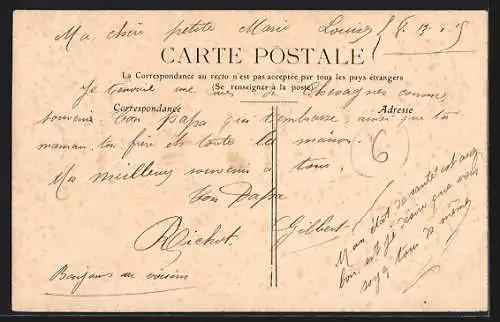 Ma chère petite Marie Louise
CARTE POSTALE
La Correspondance au recto n'est pas acceptée par tous les pays étrangers
(Se renseigner à la poste)
Je t'envoie une vue de Chevagnes comme
Correspondance Adresse
souvenir ton papa qui t'embrasse, ainsi que ta
maman, ton frère et toute la maison.
6
Mes meilleurs souvenir à tous,
Ton Papa
Gilbert
Richet
Mon état de santé est assez
bon, et je désire que vous
soyez tous de même
Bonjours au voisins